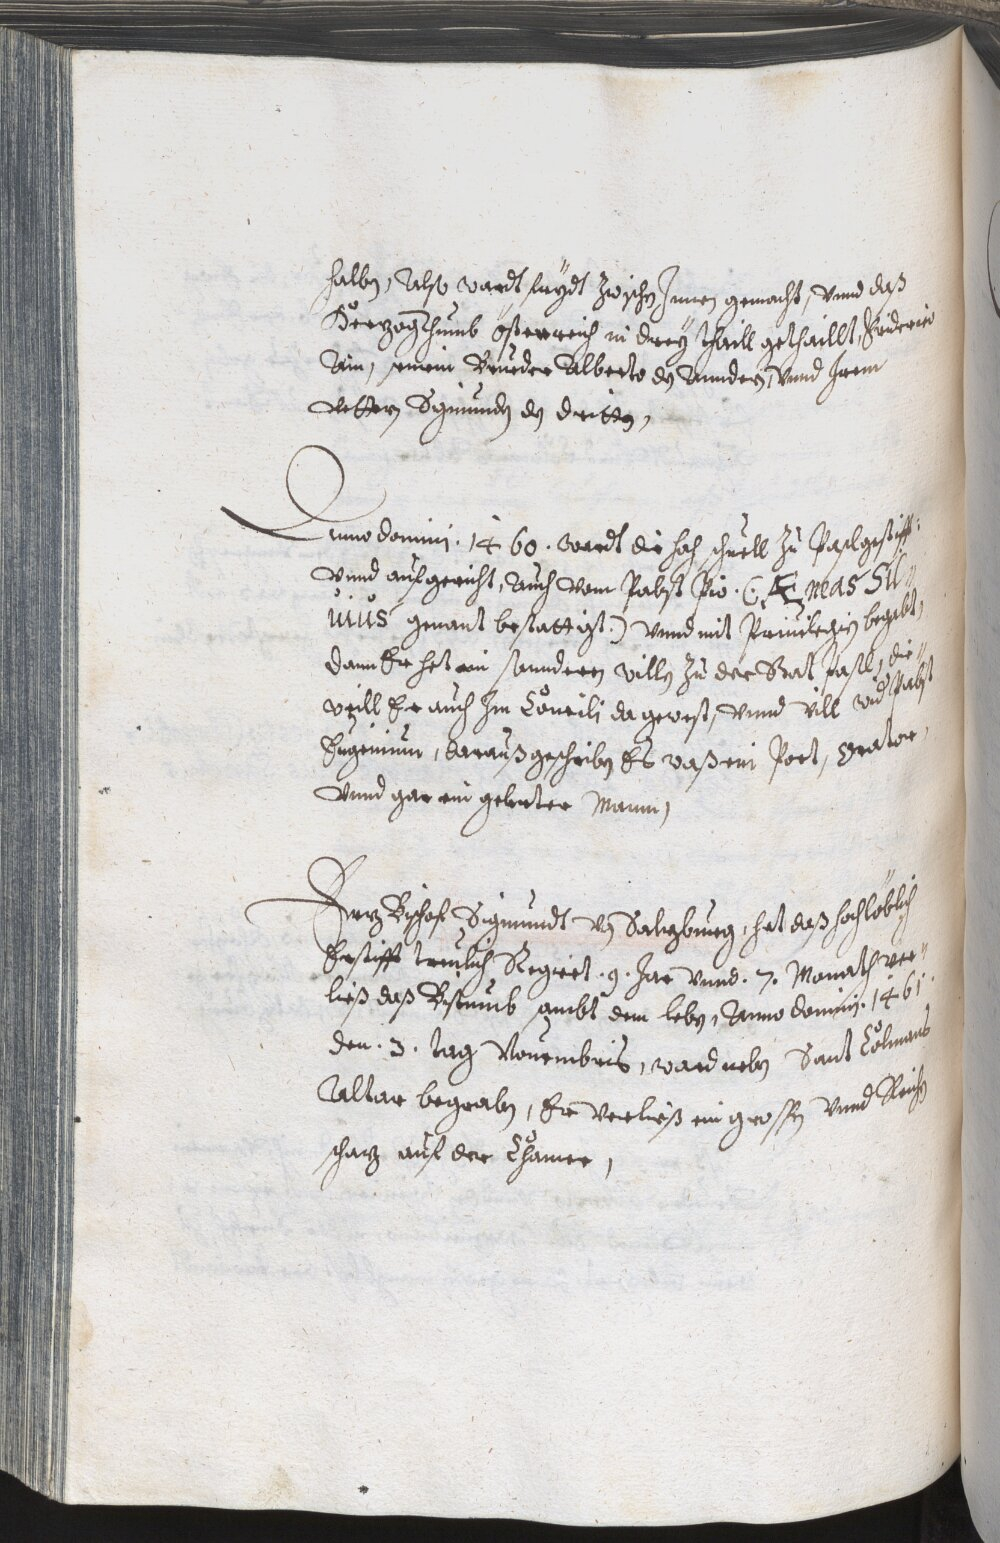 halbn, Also wardt fridt zwischn Innen gemacht, vnnd daß
Herzogthumb österreich in dreÿ thaill gethaillt, Friderico
Ain, seinem Brueder Alberto dn Anndern, Vnnd Irem
Vettern Sigmundn dn dritten,
Anno domini. 1460. wardt die hoch schuell zu Pasl gestifft:
vnnd aufgericht, Auch vom Pabst Pio. (: Æneas Sil=
uius genant bestattigt:) vnnd mit Priuilegien begabt,
dann Er het ein sonndern willn zu der Stat Pasl, die=
weill Er auch Im Concili da gewest, vnnd vill wid Pabst
Eugenium, darauß geschribn Es waß ein Poet, orator,
vnnd gar ein gelerter Mann,
Erz Bischof Sigmundt vn Salzburg, hat daß hochloblich
Erstifft treulich Regiert. 9. Jar vnnd. 7. Monath ver=
ließ daß Bistumb sambt dem lebn, Anno domini. 1461.
den. 3. tag Nouembris, ward nebn Sant Colmans
Altar begrabn, Er verließ ein grossn vnnd Reichn
schaz auf der Chamer,